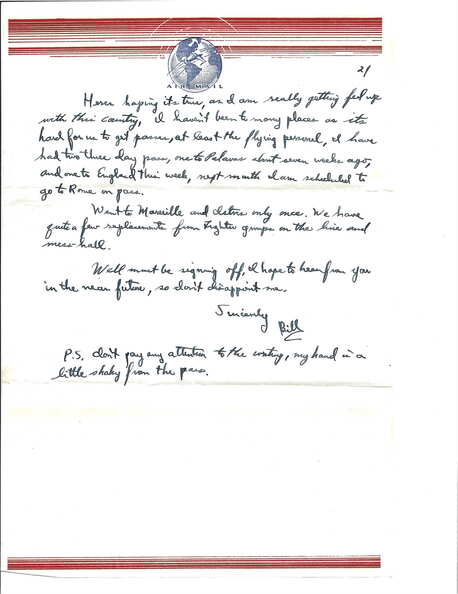 AIR MAIL
2/
Heres hoping its true, as I am really getting fed up
with this country, I haven't been to many places as its
hard for us to get passes, at least the flying personel, I have
had two three day pass, one to Palavas about seven weeks ago,
and one to England this week, next month I am scheduled to
go to Rome on pass.
Went to Marseille and only once. We have
quite a few replacements from Fighter groups on the line and
mess-hall.
Well must be signing off, I hope to hear from you
in the near future, so don't disappoint me.
Sincerely
Bill
P.S. don't pay any attention to the writing, my hand is a
little shaky from the pass.